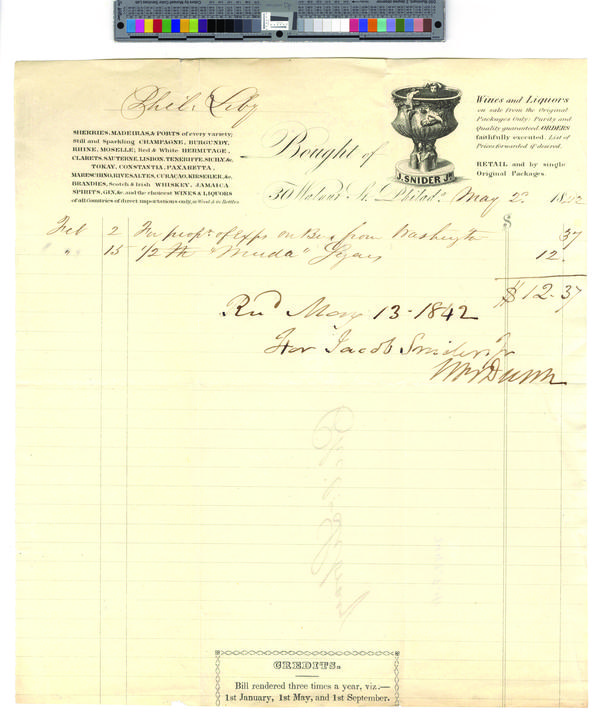 Phil. Liby
SHERRIES, MADEIRAS, & PORTS of every variety;
Still and Sparkling CHAMPAGNE, BURGUNDY,
RHINE, MOSELLE; Red & White HERMITAGE,
CLARETS, SAUTERNE, LISBON, TENERIFFE, SICILY, &c.
TOKAY, CONSTANTIA, PAXARETTA,
MARESCHINO, RIVESALTES, CURAÇAO, KIRSEHER, &c.
BRANDIES, Scotch & Irish WHISKEY, JAMAICA
SPIRITS, GIN, &c. and the choicest WINES & LIQUORS
of all Countries of direct importations only, in Wood & in Bottles.
Bought of
J. SNIDER Jr.
Wines and Liquors
on sale from the Original
Packages Only: Purity and
Quality guaranteed. ORDERS
faithfully executed. List of
Prices forwarded if desired.
RETAIL and by single
Original Packages.
30 Walnut St. Philada. May 2d 1842
$
Feb 2 For prop. of Exps on Box from Washingtn 37
" " 15 1/2 th "Nuda" Segars 12.
$12.37
Recd May 13 - 1842
For Jacob Snider Jr
Wm Dunn
CREDITS.
Bill rendered three times a year, viz:—
1st January, 1st May, and 1st September.